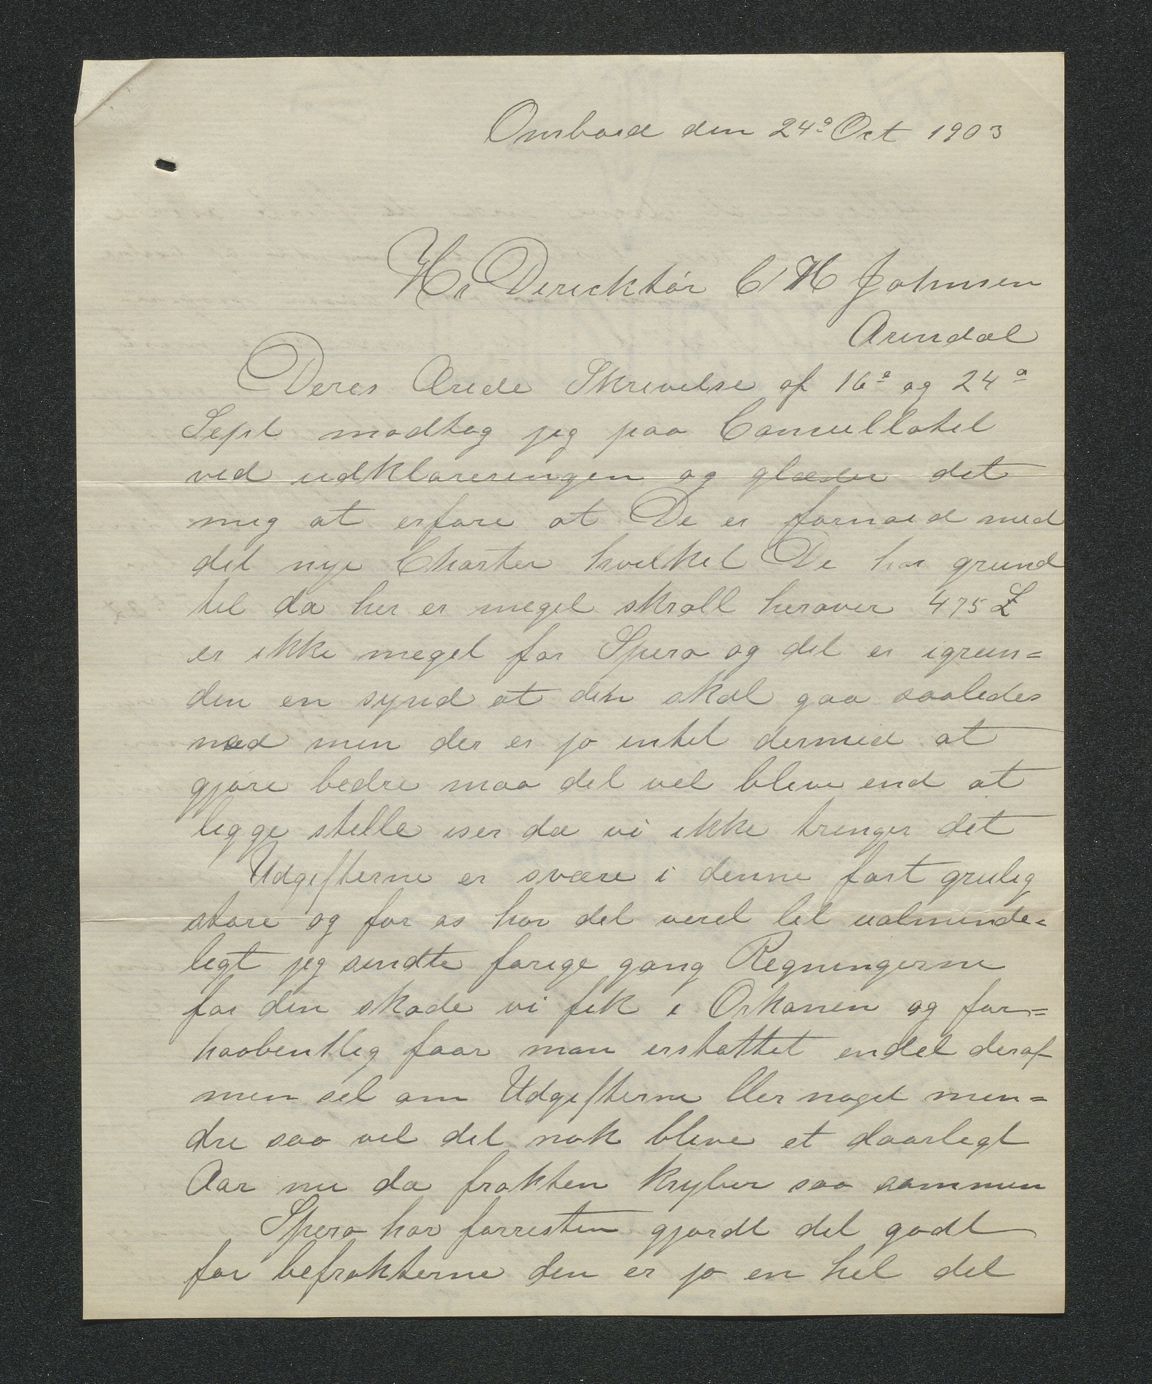 Ombord den 24de Oct 1903
Hr Direcktør C H Johnsen
Arendal
Deres Ærede Skrivelse af 16de og 24de
Sept modtog jeg paa Consullatet
ved udklareringen og glæder det
mig at erfare at De er fornøied med
det nye Charter hvilket De har grund
til da her er meget skralt herover 475 £
er ikke meget for Spero og det er igrun=
den en synd at den skal gaa saaledes
ned men der er jo intet dermed at
gjøre bedre maa det vel blive end at
ligge stille iser da vi ikke trenger det
Udgifterne er svære i denne fart grulig
store og for os har det verd let ualminde=
ligt jeg sendte forige gang Regningerne
for den skade vi fik i Orkanen og for=
haabentlig faar man erstattet endel deraf
men sel om Udgifterne bler noget men=
dre saa vel det nok blive et daarligt
Aar nu da frakten kryber saa sammen
Spero har forresten gjordt det godt
for befrakterne den er jo en hel del